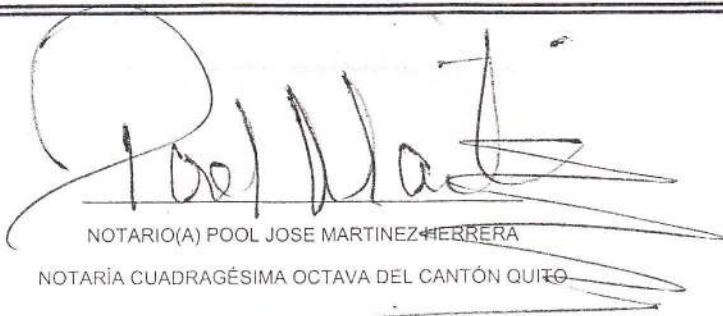 Pool Martinez
NOTARIO(A) POOL JOSE MARTINEZ HERRERA
NOTARÍA CUADRAGÉSIMA OCTAVA DEL CANTÓN QUITO